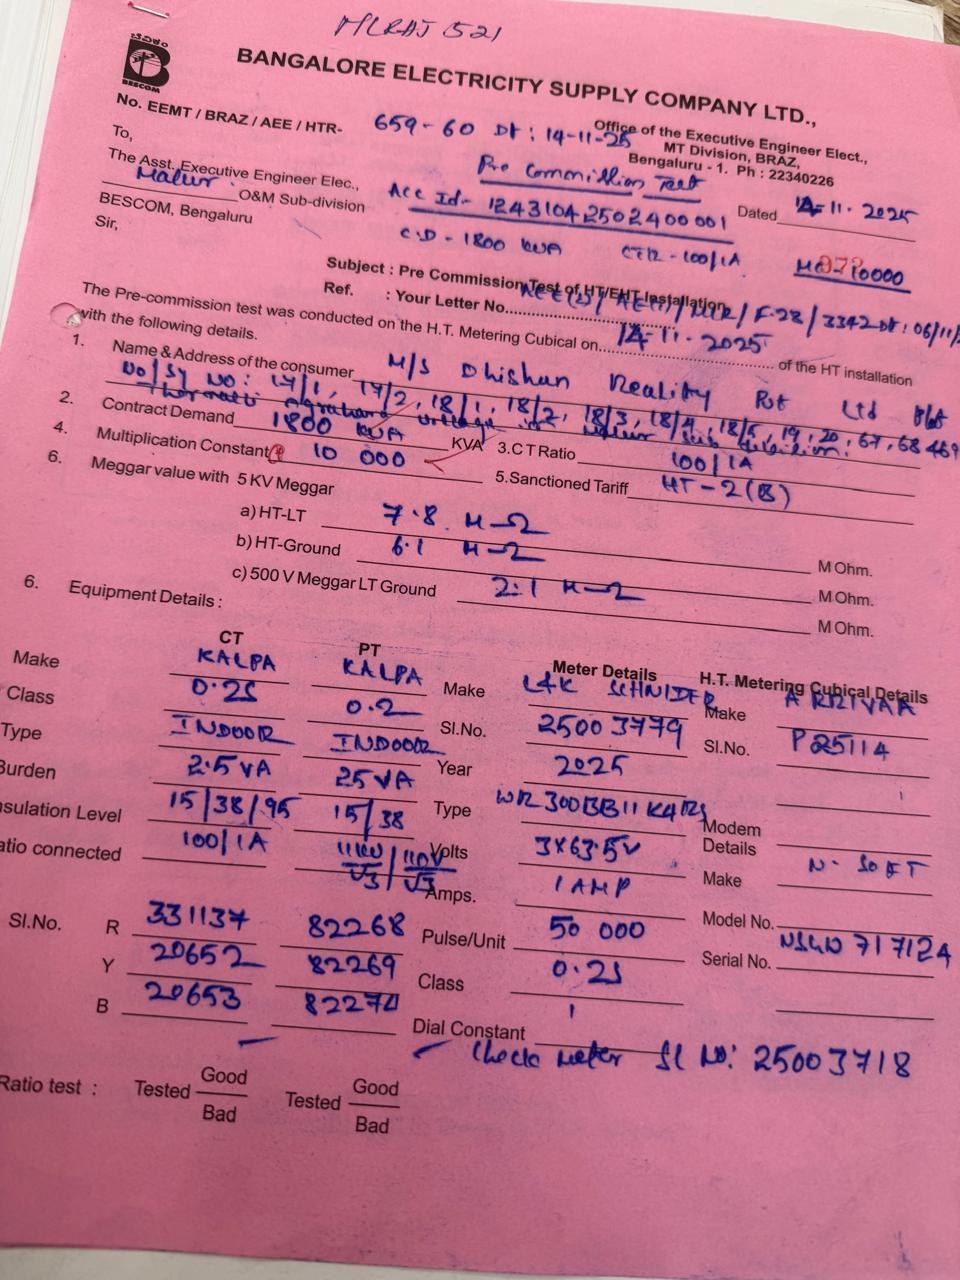 MLRAJ 521
ಬೆವಿಕಂ
B
BESCOM
BANGALORE ELECTRICITY SUPPLY COMPANY LTD.,
No. EEMT / BRAZ / AEE / HTR- 659-60 Dt : 14-11-25
Office of the Executive Engineer Elect.,
MT Division, BRAZ,
Bengaluru - 1. Ph : 22340226
To,
The Asst. Executive Engineer Elec.,
Malur. O&M Sub-division
BESCOM, Bengaluru
Sir,
Pre Commission Test
Acc Id- 1243104250240 0001
Dated 14-11-2025
C.D - 1800 KVA CTR - 100/1A 10000
Subject : Pre Commission Test of HT/EHT Installation
Ref. : Your Letter No. AEE(2)/AE(T)/MLR/F-28/3342 Dt: 06/11/
The Pre-commission test was conducted on the H.T. Metering Cubical on 14-11-2025 of the HT installation
with the following details.
1. Name & Address of the consumer M/S Dhishan Reality Pvt Ltd
No/Sy No: 17/1, 17/2, 18/1, 18/2, 18/3, 18/4, 18/5, 19, 20, 67, 68 &69
2. Contract Demand 1800 KVA KVA 3.C T Ratio 100/1A
4. Multiplication Constant 10 000 5.Sanctioned Tariff HT-2(B)
6. Meggar value with 5 KV Meggar
a) HT-LT 7.8 M-Ω M Ohm.
b) HT-Ground 6.1 M-Ω M Ohm.
c) 500 V Meggar LT Ground 2.1 M-Ω M Ohm.
6. Equipment Details :
CT PT Meter Details H.T. Metering Cubical Details
Make KALPA KALPA Make L&K SCHNIDER Make ARRIVAA
Class 0.2S 0.2 Sl.No. 25003779 Sl.No. P25114
Type INDOOR INDOOR Year 2025
Burden 2.5 VA 25 VA Type WR300BB11K4RS Modem
Insulation Level 15/38/95 15/38 Volts 3X63.5V Details N-SOFT
atio connected 100/1A 11KV/√3 / 110V/√3 Amps. 1 AMP Make
Sl.No. R 331137 82268 Pulse/Unit 50 000 Model No.
Y 20652 82269 Class 0.2S Serial No. NSGW717124
B 20653 82270 Dial Constant 1
Check meter Sl No: 25003718
Ratio test : Tested Good Tested Good
Bad Bad